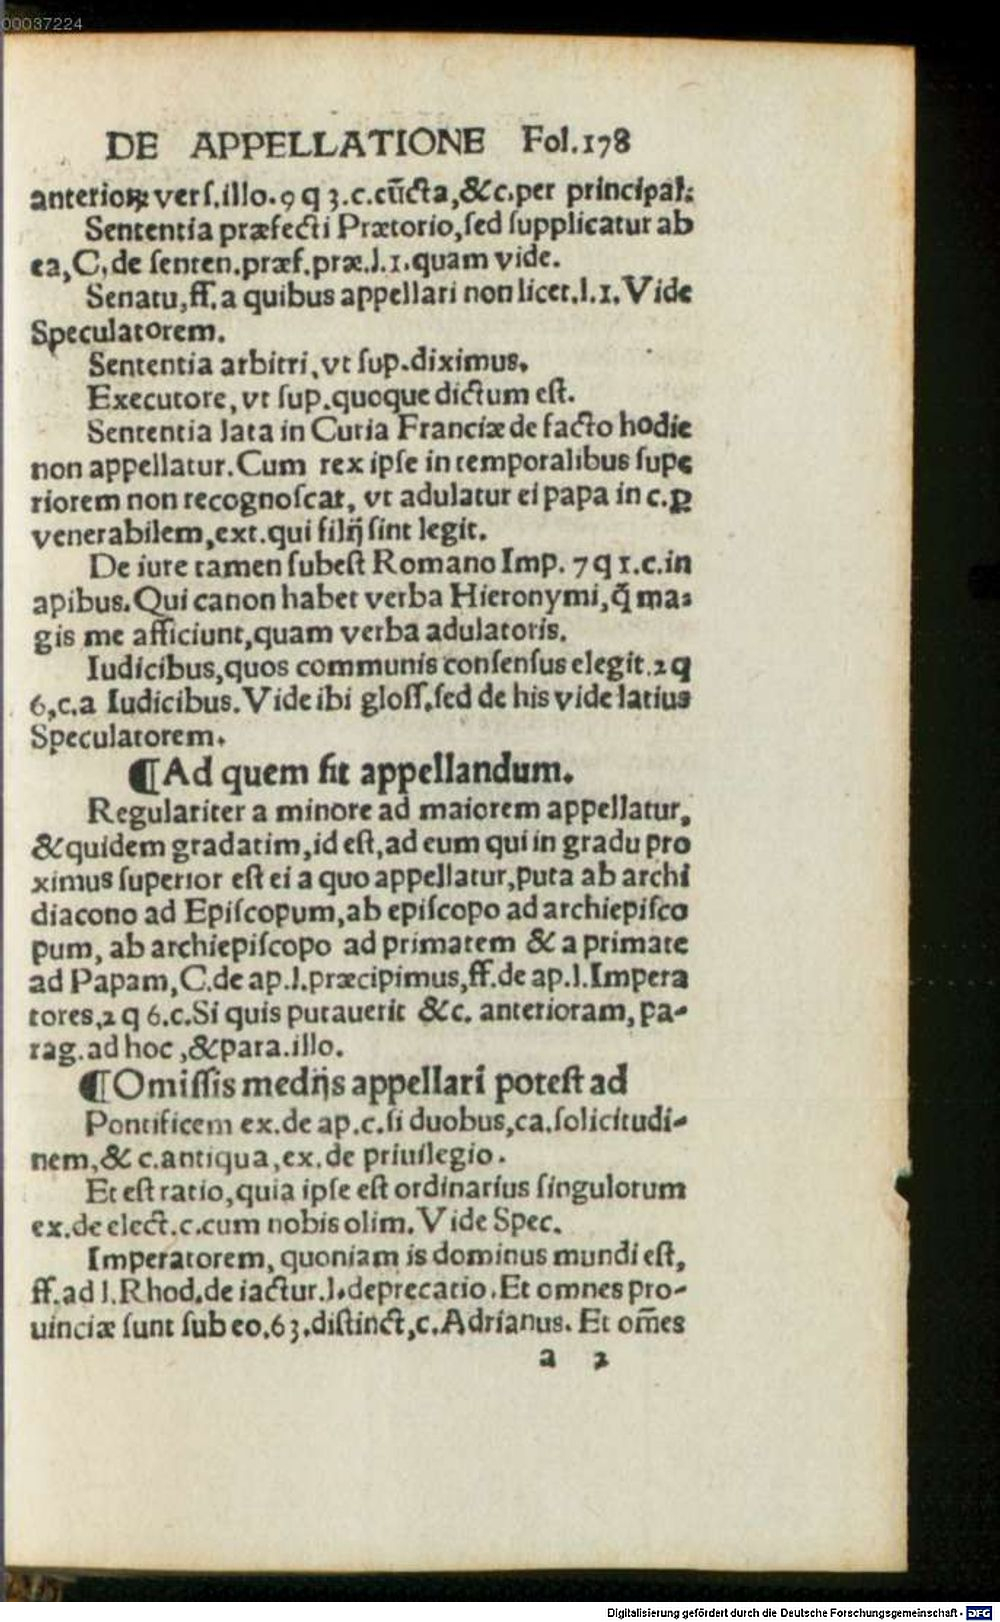 00037224
DE APPELLATIONE Fol.178
anterioꝝ verſ.illo.9 q 3.c.cūcta,&c.per principal:
Sententia præfecti Prætorio,ſed ſupplicatur ab
ea,C.de ſenten.præf.præ.l.1.quam vide.
Senatu,ff.a quibus appellari non licet.l.1.Vide
Speculatorem.
Sententia arbitri,vt ſup.diximus.
Executore,vt ſup.quoque dictum eſt.
Sententia lata in Curia Franciæ de facto hodie
non appellatur.Cum rex ipſe in temporalibus ſupe
riorem non recognoſcat, vt adulatur ei papa in c.ꝑ
venerabilem,ext.qui filij ſint legit.
De iure tamen ſubeſt Romano Imp. 7 q 1.c.in
apibus.Qui canon habet verba Hieronymi,q̄ ma-
gis me afficiunt,quam verba adulatoris.
Iudicibus,quos communis conſenſus elegit.2 q
6,c.a Iudicibus.Vide ibi gloſſ.ſed de his vide latius
Speculatorem.
¶Ad quem ſit appellandum.
Regulariter a minore ad maiorem appellatur,
&quidem gradatim,id eſt,ad eum qui in gradu pro
ximus ſuperior eſt ei a quo appellatur,puta ab archi
diacono ad Epiſcopum,ab epiſcopo ad archiepiſco
pum, ab archiepiſcopo ad primatem & a primate
ad Papam,C.de ap.l.præcipimus,ff.de ap.l.Impera
tores,2 q 6.c.Si quis putauerit &c. anterioram, pa-
rag.ad hoc,&para.illo.
¶Omiſſis medijs appellari poteſt ad
Pontificem ex.de ap.c.ſi duobus,ca.ſolicitudi-
nem,& c.antiqua,ex.de priuilegio.
Et eſt ratio,quia ipſe eſt ordinarius ſingulorum
ex.de elect.c.cum nobis olim.Vide Spec.
Imperatorem, quoniam is dominus mundi eſt,
ff.ad l.Rhod.de iactur.l.deprecatio.Et omnes pro-
uinciæ ſunt ſub eo.63.diſtinct,c.Adrianus. Et om̄es
a 2
Digitalisierung gefördert durch die Deutsche Forschungsgemeinschaft - DFG